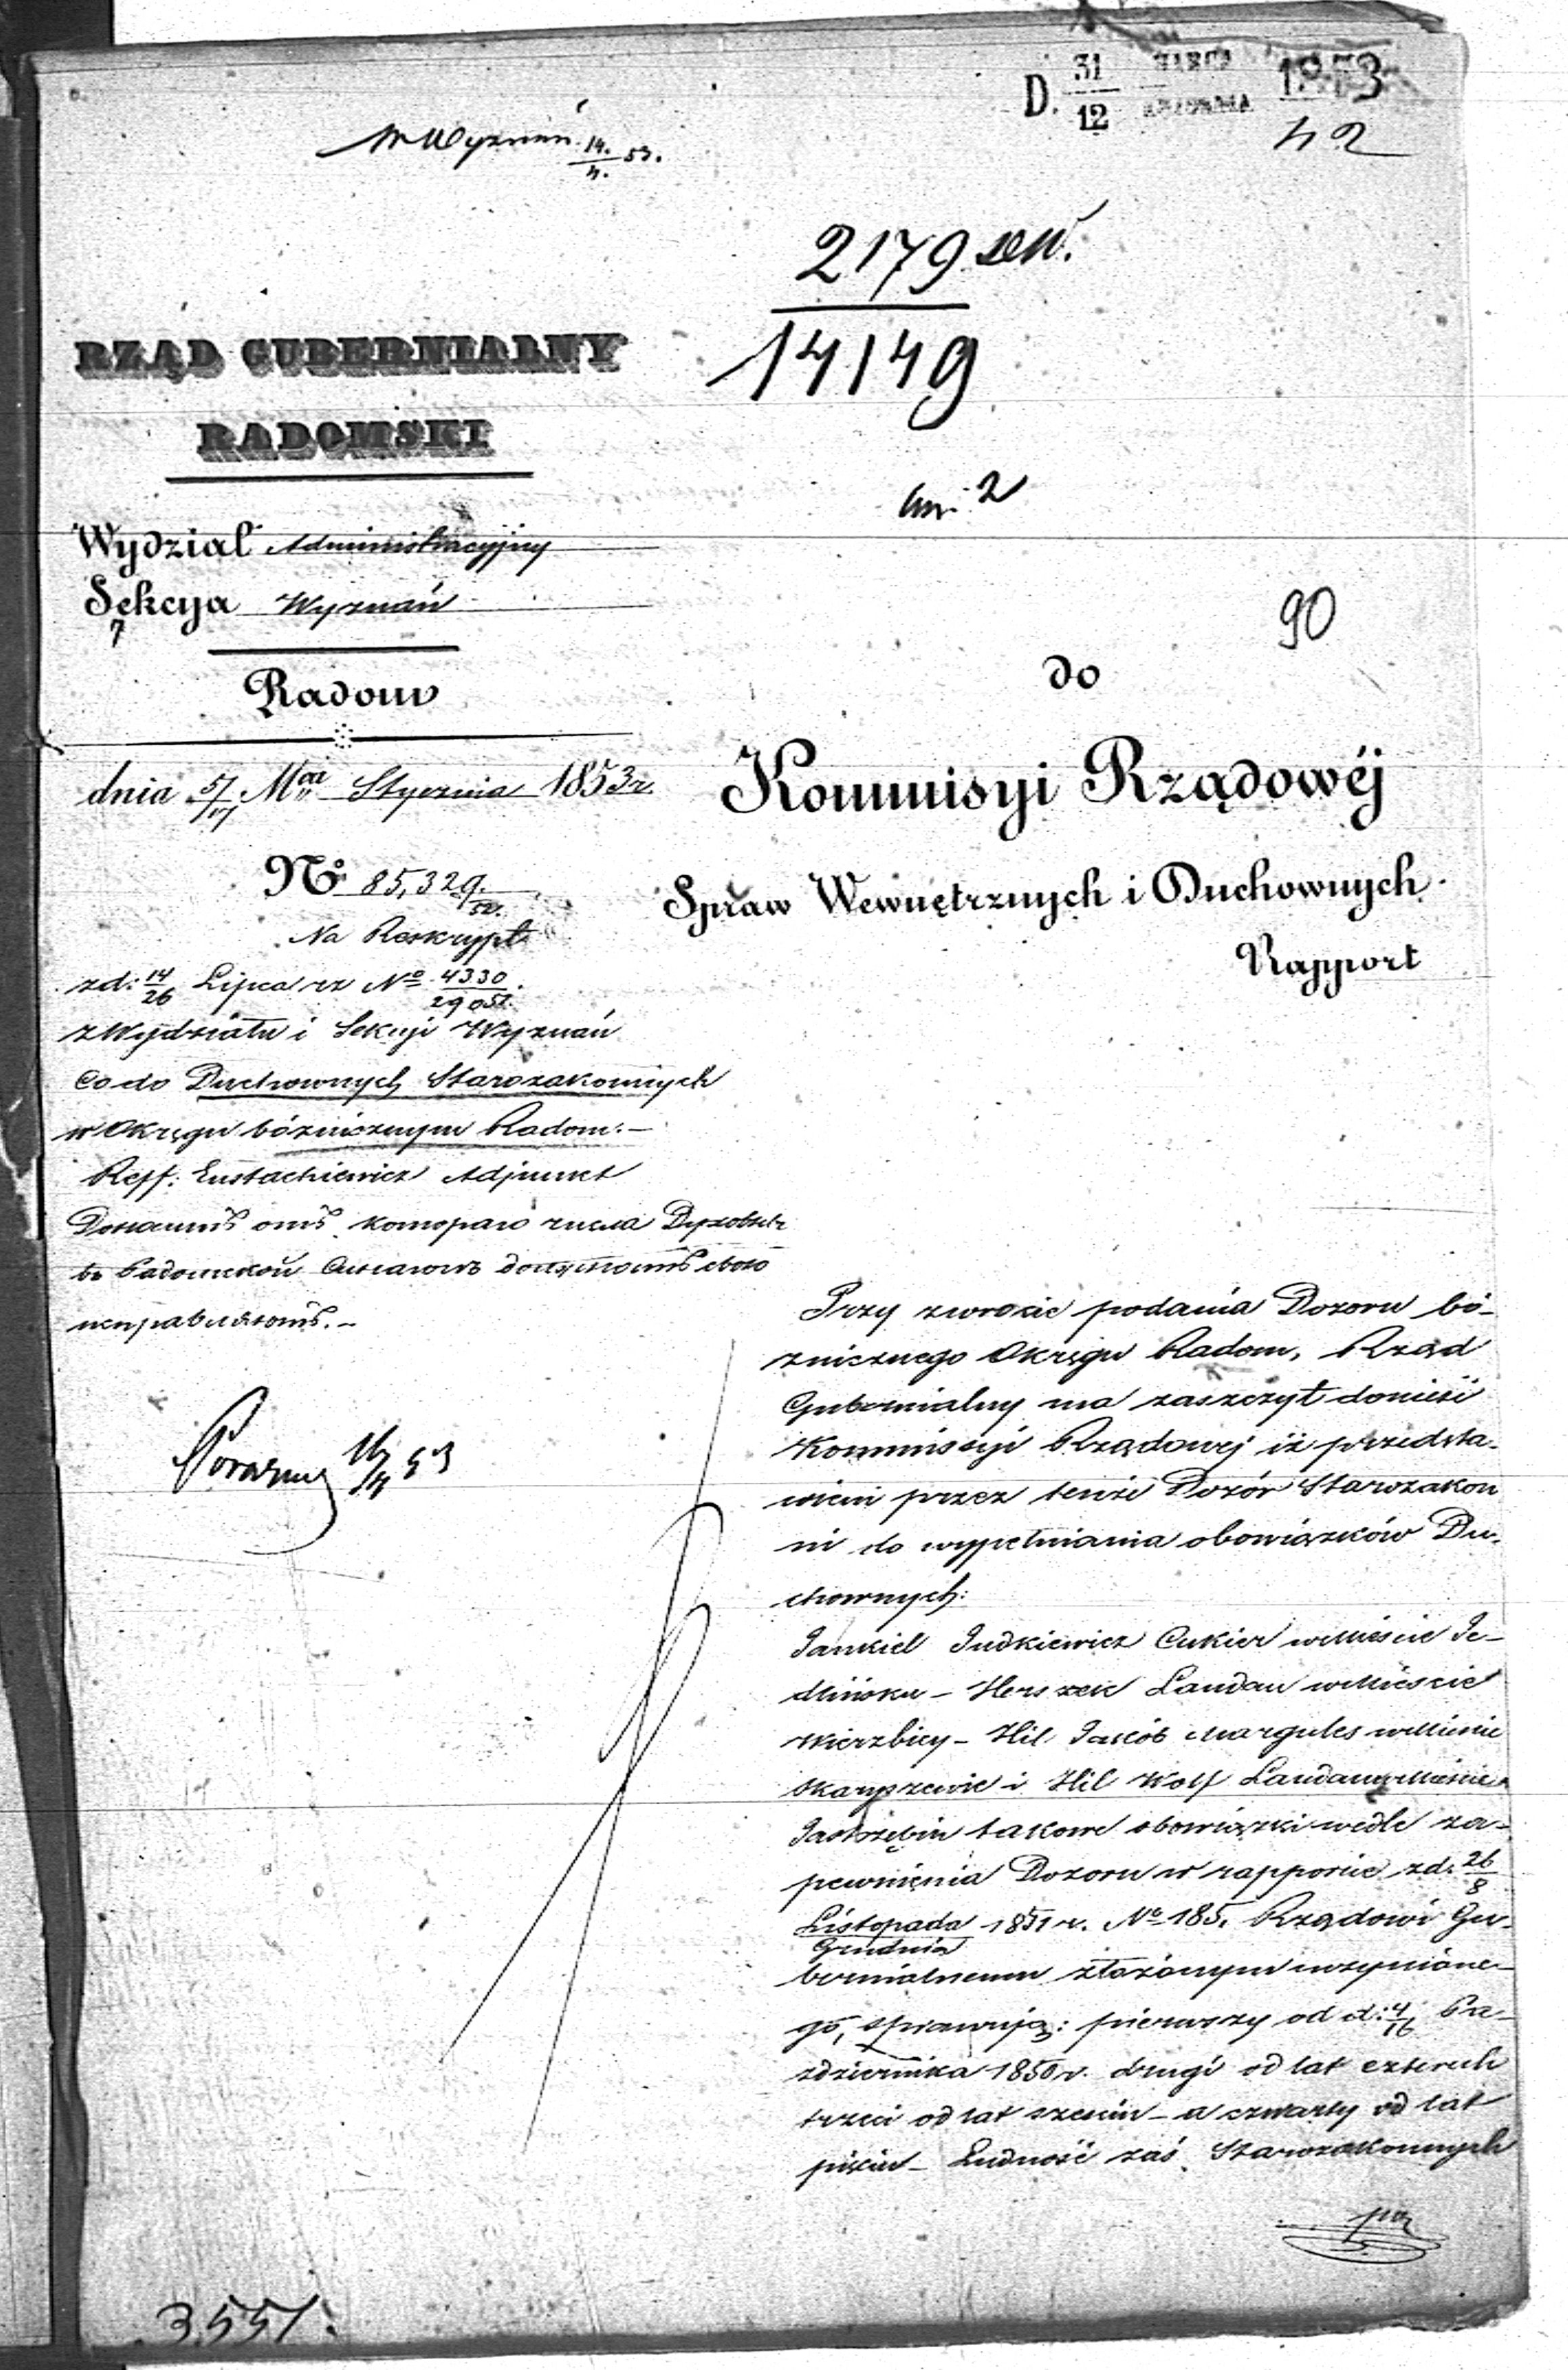 D. 31/12 MARCA 1853
42
W Wyznań 14./4. 53.
2179 sew.
14149
an: 2
90
RZĄD GUBERNIALNY
RADOMSKI
Wydział Administracyjny
Sekcya Wyznań
Radom
dnia 5/17 Mca Stycznia 1853 r.
No 85,329./52.
Na Reskrypt
z d: 14/26 Lipca rz No 4330/29052.
z Wydziału i Sekcyi Wyznań
Co do Duchownych Starozakonnych
w Okręgu bóżnicznym Radom.—
Reff: Eustachiewicz Adjunct
Доноситъ отъ котораго числа
въ Радомской
исправляютъ.—
do
Kommisyi Rządowéj
Spraw Wewnętrznych i Duchownych
Rapport
Przy zwrocie podania Dozoru bó-
znicznego Okręgu Radom, Rząd
Gubernialny ma zaszczyt donieść
Kommissyi Rządowej iż przedsta-
wieni przez tenże Dozór Starozakon
ni do wypełniania obowiązków Du-
chownych:
Jankiel Judkiewicz Cukier w Mieście Je-
dlińsku – Herszek Landau w Mieście
Wierzbicy – Hil Jakób Margules w Mieście
Skaryszewie i Hil Wolf Landau w Mieście
Jastrzębiu takowe obowiązki wedle za-
pewnienia Dozoru w rapporcie z d. 26/8
Listopada/Grudnia 1851 r. No 185. Rządowi Gu-
bernialnemu złożonym uczynione-
go, sprawują: pierwszy od d: 4/16 Pa-
zdziernika 1850 r. drugi od lat czterech
trzeci od lat sześciu – a czwarty od lat
pięciu – Ludność zaś Starozakonnych
3551.